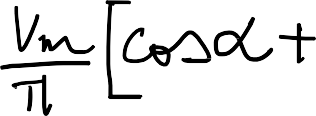 \frac{V_m}{\pi} [cos α +